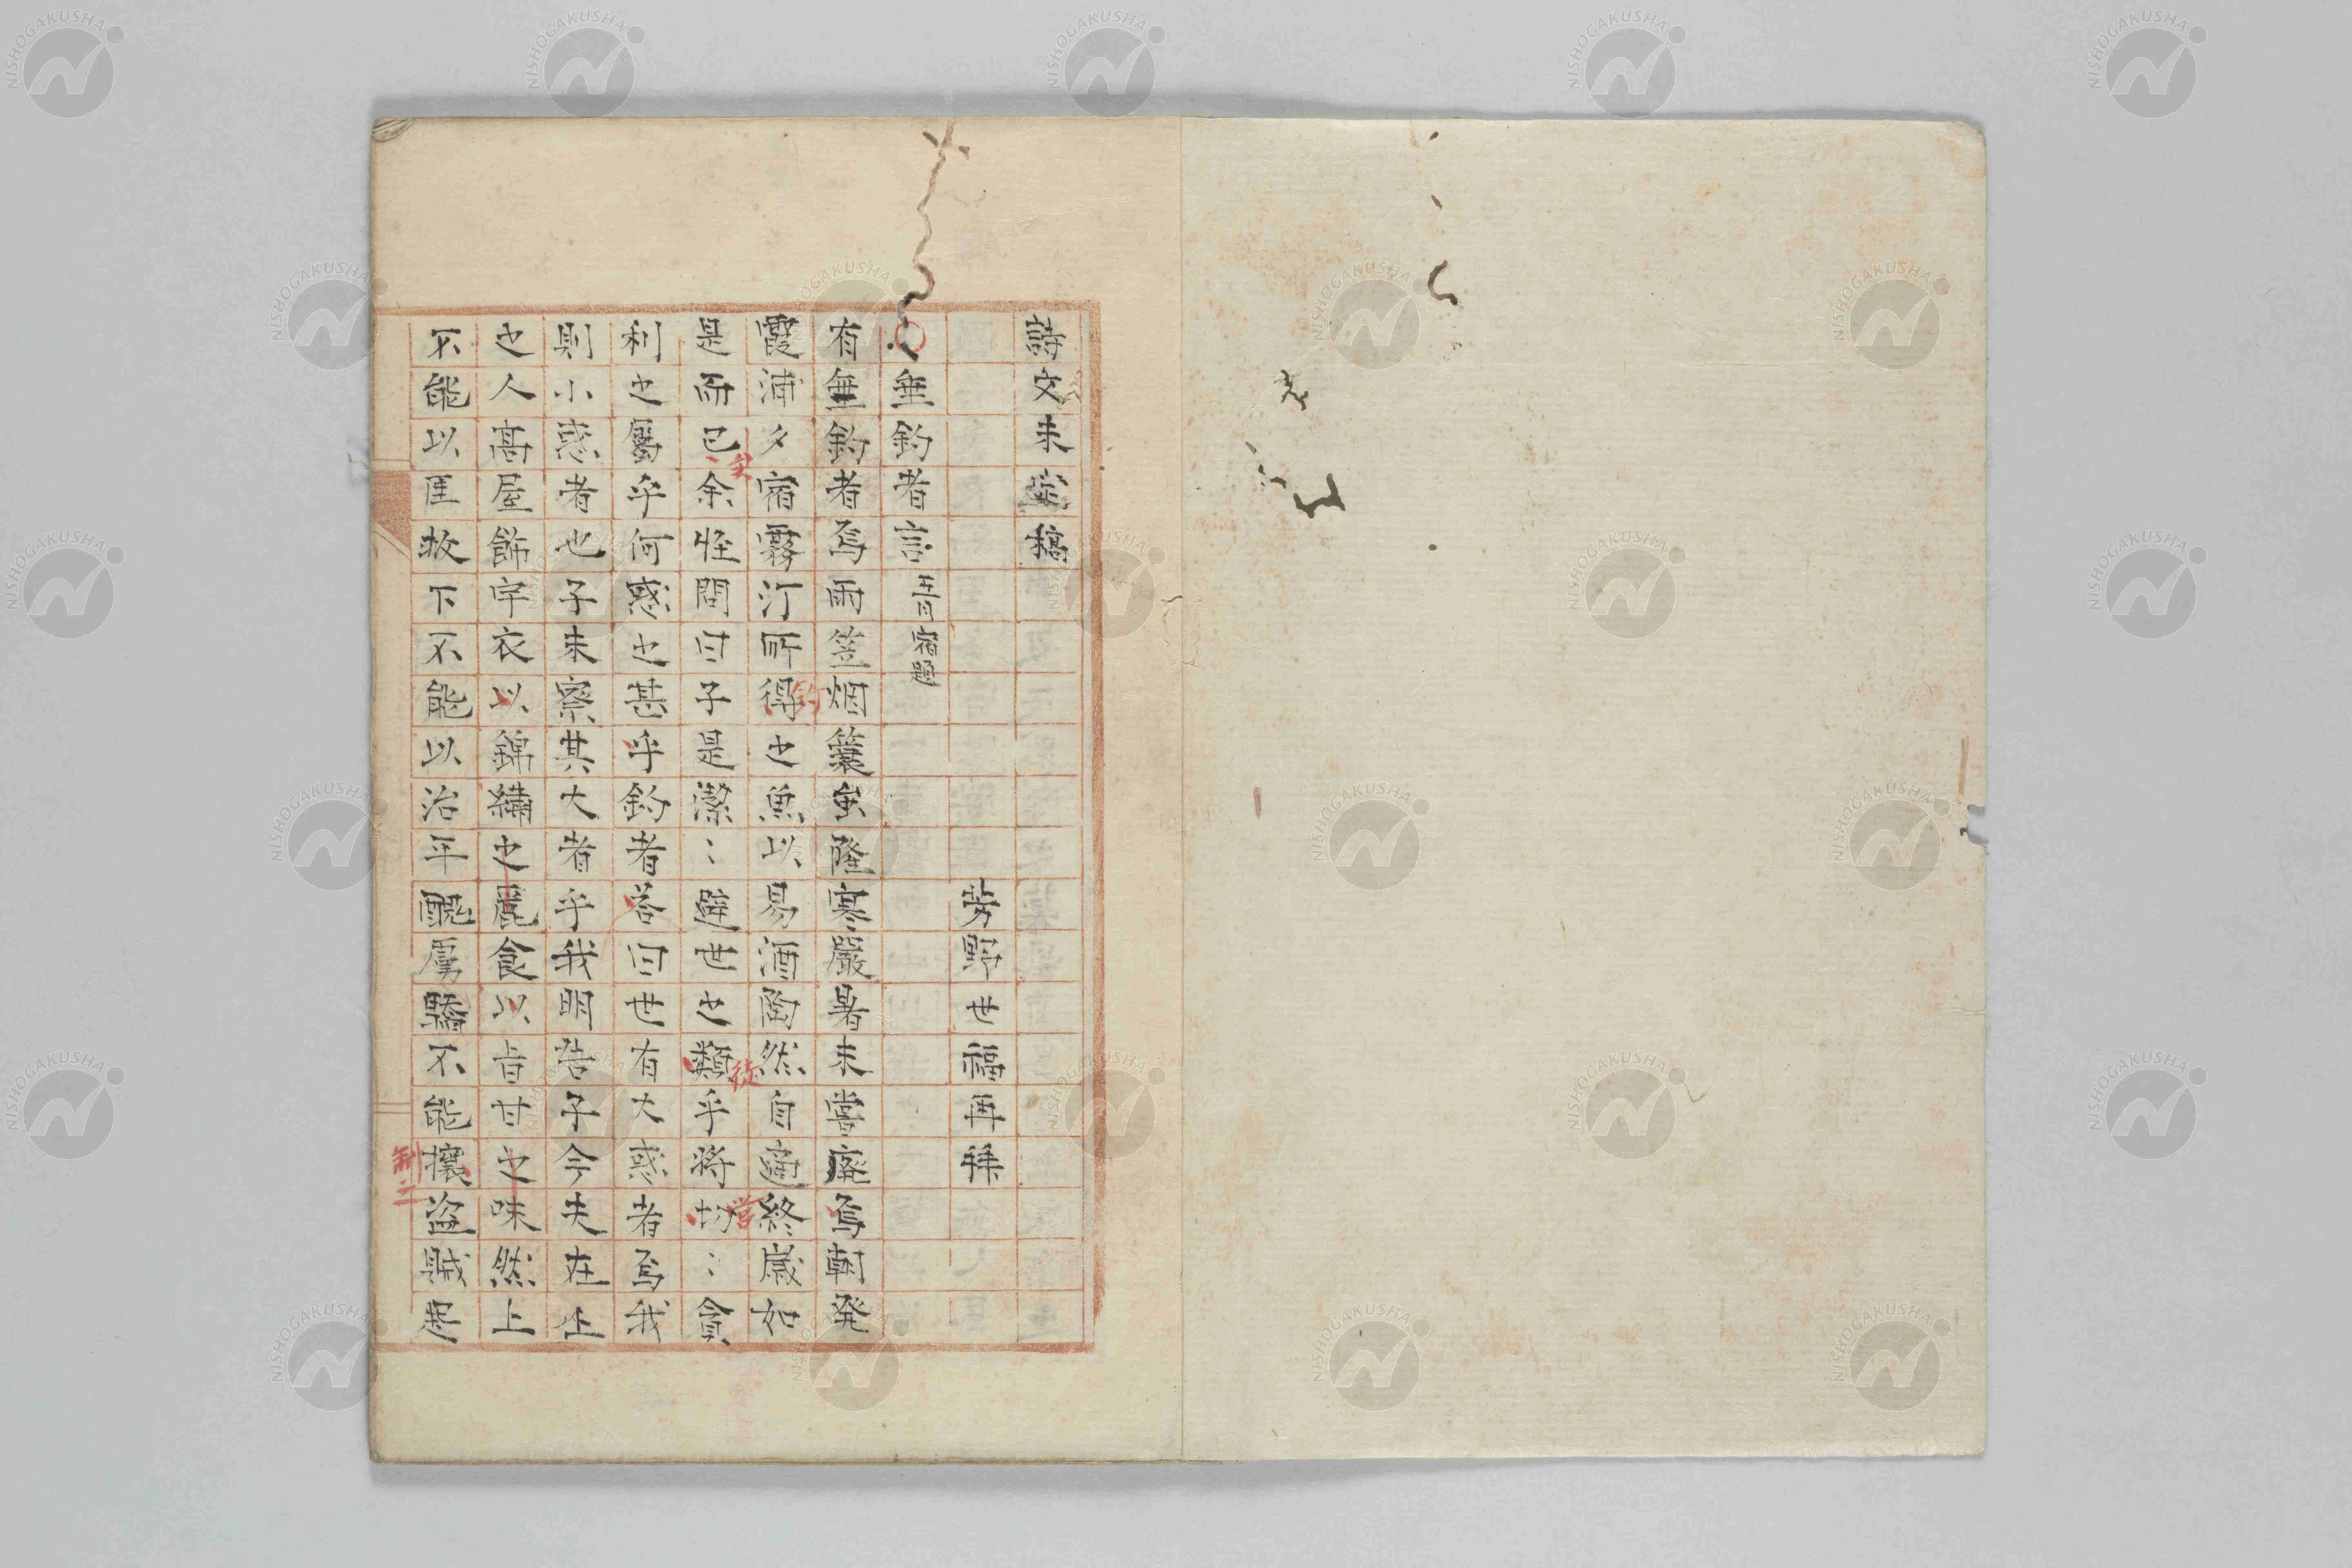 詩文未定稿
芳野世福再拜
垂釣者言 五月宿題
有垂釣者焉雨笠烟簑虽隆寒嚴暑未嘗廢焉朝発
霞浦夕宿霧汀所得之魚以易酒陶然自適終歳如
釣
是而已余恠問曰子是潔〻避世之類乎将切〻貪
矣
徒
営
利之屬乎何惑之甚乎釣者荅曰世有大惑者焉我
則小惑者也子未察其大者乎我明告子今夫在上
之人髙屋飾宇衣以錦繡之麗食以旨甘之味然上
不能以匡救下不能以治平醜虜驕不能攘盗賊起
制之
NISHOGAKUSHA